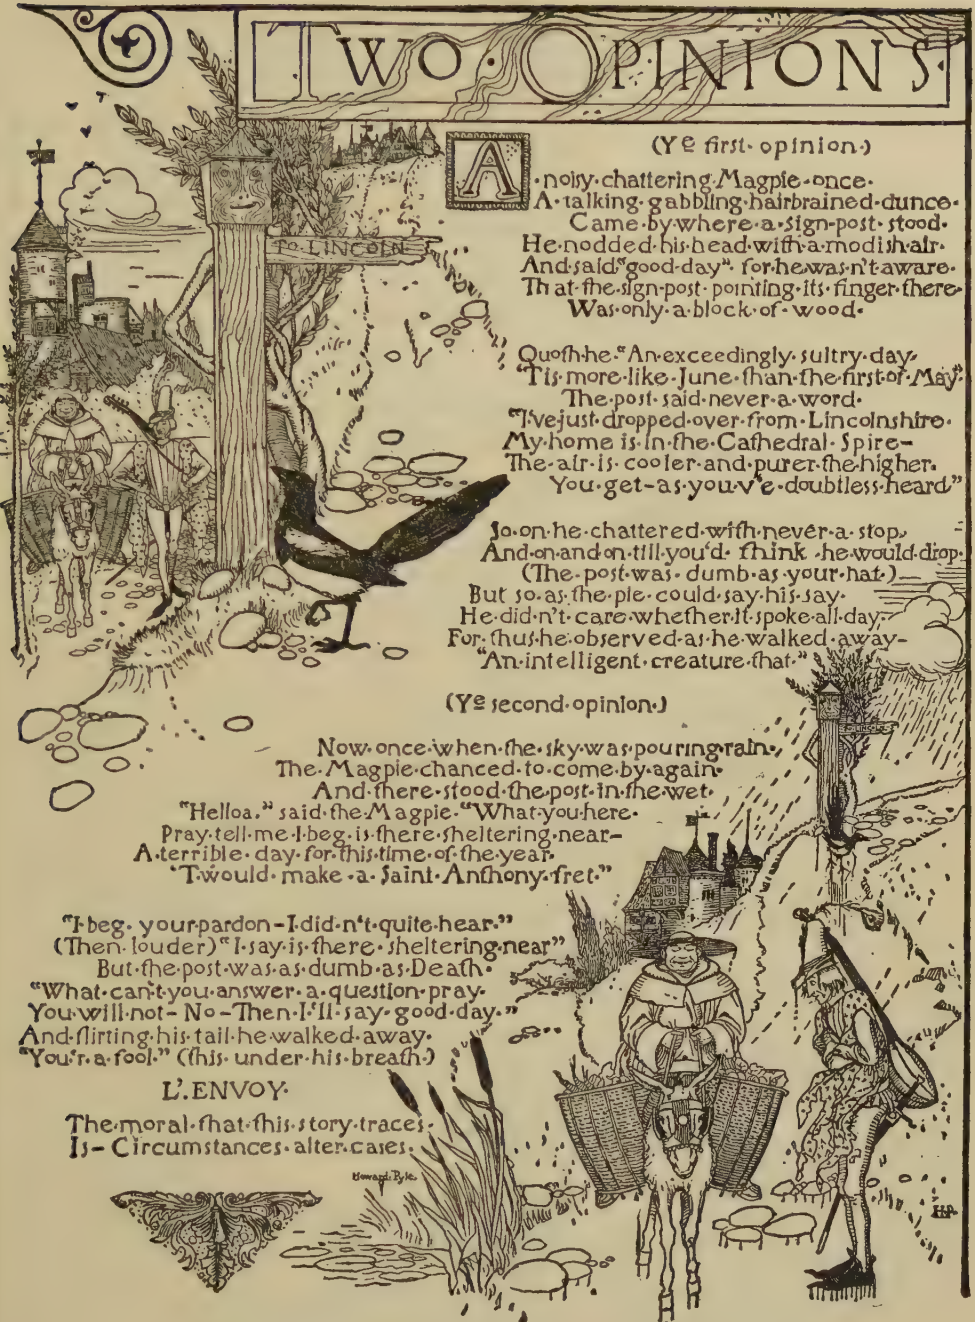 TWO·OPINIONS
(Yᵉ first·opinion·)
A·noisy·chattering·Magpie·once·
A·talking·gabbling·hairbrained·dunce·
Came·by·where·a·sign-post·stood·
He·nodded·his·head·with·a·modish·air·
And·said"good-day"·for·he·was·n't·aware·
That·the·sign-post·pointing·its·finger·there·
Was·only·a·block·of·wood·
TO·LINCOLN
Quoth·he·"An·exceedingly·sultry·day·
'Tis·more·like·June·than·the·first·of·May"·
The·post·said·never·a·word·
"I've·just·dropped·over·from·Lincolnshire·
My·home·is·in·the·Cathedral·Spire-
The·air·is·cooler·and·purer·the·higher·
You·get-as·you·v'e·doubtless·heard"
So·on·he·chattered·with·never·a·stop·
And·on·and·on·till·you'd·think·he·would·drop·
(The·post·was·dumb·as·your·hat·)
But·so·as·the·pie·could·say·his·say·
He·did·n't·care·whether·it·spoke·all·day·
For·thus·he·observed·as·he·walked·away-
"An·intelligent·creature·that·"
(Yᵉ second·opinion·)
Now·once·when·the·sky·was·pouring·rain·
The·Magpie·chanced·to·come·by·again·
And·there·stood·the·post·in·the·wet·
"Helloa·"said·the·Magpie·"What·you·here·
Pray·tell·me·I·beg·is·there·sheltering·near-
A·terrible·day·for·this·time·of·the·year·
'T·would·make·a·Saint·Anthony·fret·"
"I·beg·your·pardon-I·did·n't·quite·hear·"
(Then·louder)"I·say·is·there·sheltering·near"
But·the·post·was·as·dumb·as·Death·
"What·can't·you·answer·a·question·pray·
You·will·not-No-Then·I·'ll·say·good·day·"
And·flirting·his·tail·he·walked·away·
"You'r·a·fool·"(this·under·his·breath·)
L'·ENVOY·
The·moral·that·this·story·traces·
Is-Circumstances·alter·cases·
Howard·Pyle·
HP·